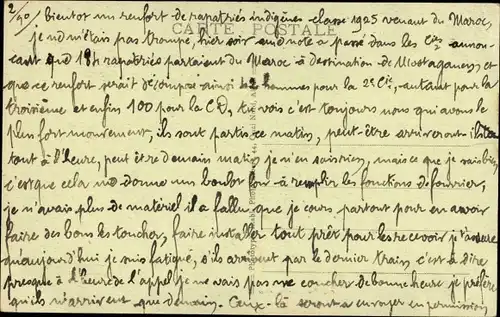 2/50, bientôt un renfort de rapatriés indigènes classe 1925 venant du Maroc,
CARTE POSTALE
je ne m'étais pas trompé, hier soir une note a passé dans les Cies annon-
cant que 184 rapatriés partaient du Maroc à destination de Mostaganem, et
que ce renfort serait décomposé ainsi 42 hommes pour la 2e Cie, autant pour la
troisième et enfin 100 pour la CD, tu vois c'est toujours nous qui avons le
plus fort mouvement, ils sont partis ce matin, peut-être arriveront-ils
tout à l'heure, peut être demain matin je n'en sais rien, mais ce que je sais bien
c'est que cela me donne un boulot fou à remplir les fonctions de fourrier,
je n'avais plus de matériel il a fallu que je cours partout pour en avoir
faire des bons les toucher, faire installer tout prêt pour les recevoir je t'assure
qu'aujourd'hui je suis fatigué, s'ils arrivent par le dernier train c'est à dire
presque à l'heure de l'appel je ne vais pas me coucher de bonne heure je préfère
qu'ils n'arrivent que demain. Ceux-là seront à envoyer en permission